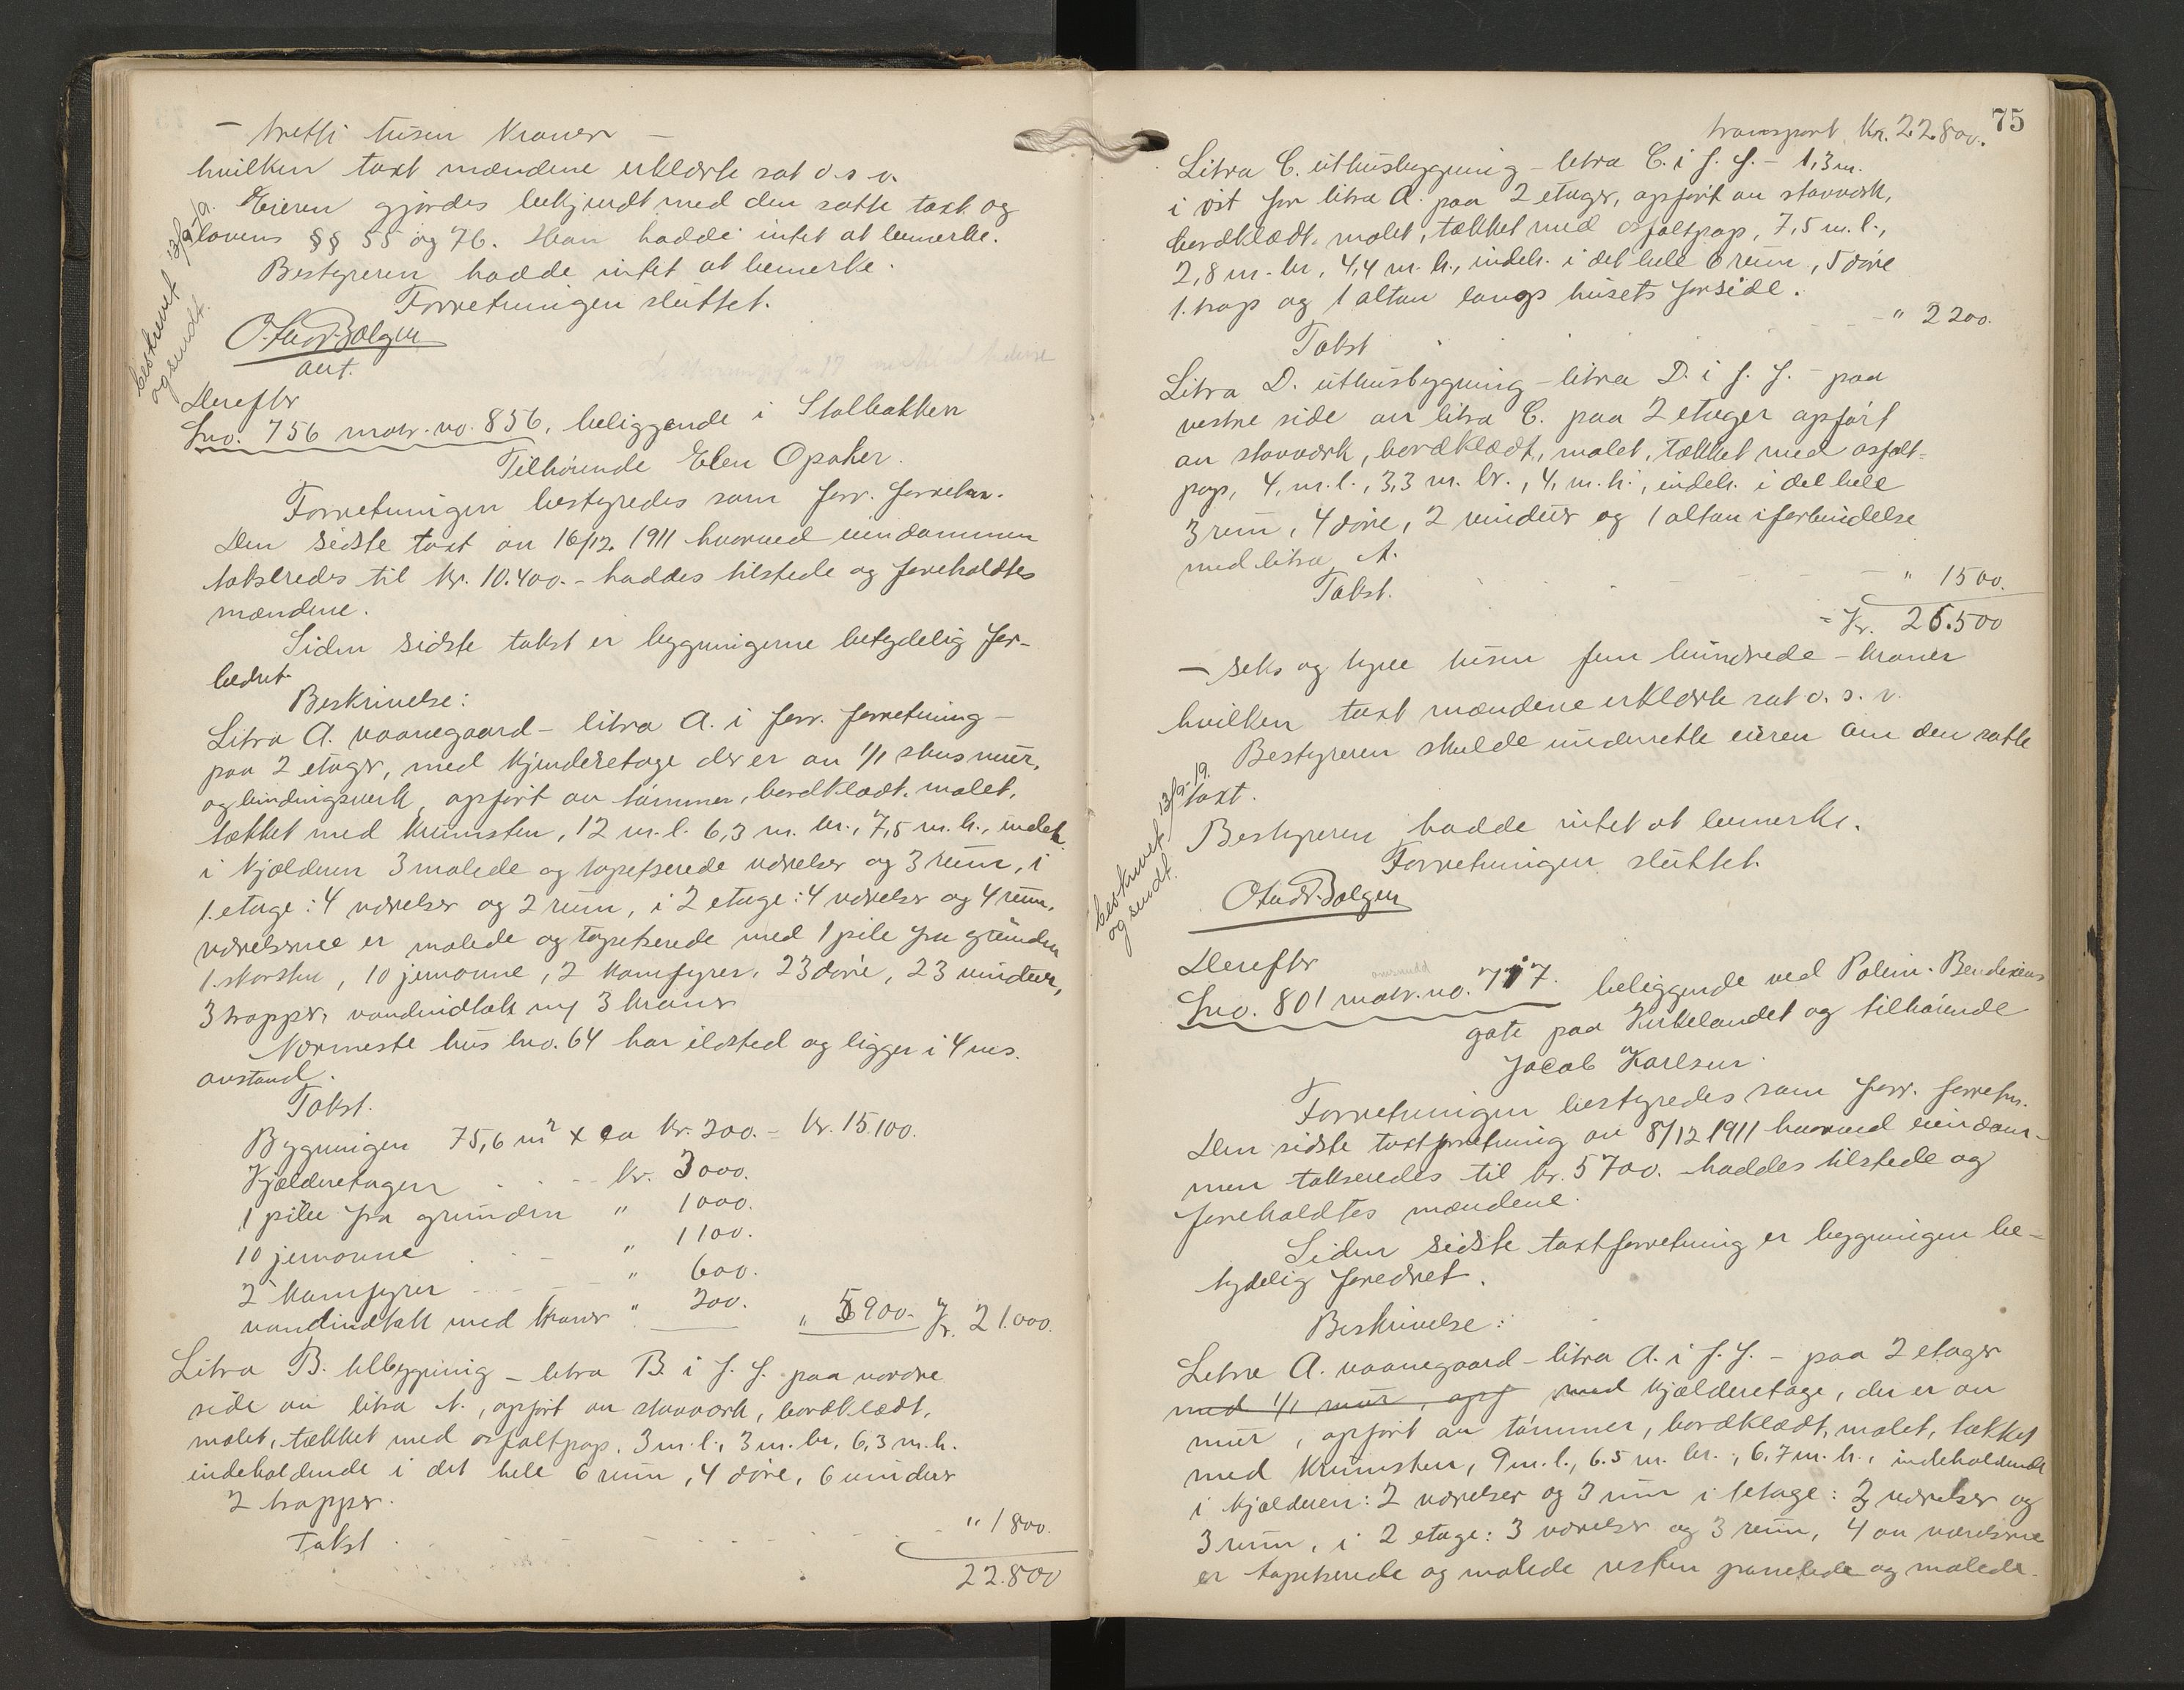 - tretti tusen kroner -
hvilken taxt mændene erklærte sat o. s. v.
Eieren gjordes bekjendt med den satte taxt og
lovens §§ 55 og 76. Han hadde intet at bemerke.
Bestyreren hadde intet at bemerke.
Forretningen sluttet.
beskrevet 13/9-19.
og sendt.
aut.
Derefter
Lno. 756 matr. no. 856, beliggende i Stolbakken
Tilhørende Elen Opaker.
Forretningen bestyredes som forr. forretn.
Den sidste taxt av 16/12. 1911 hvorved eiendommen
takseredes til kr. 10.400.- haddes tilstede og foreholdtes
mændene.
Siden sidste takst er bygningerne betydelig for-
bedret.
Beskrivelse:
Litra A. vaanegaard - litra A. i forr. forretning -
paa 2 etager, med kjelderetage der er av 1/1 stens mur,
og bindingsverk, opført av tømmer, bordklædt, malet,
tækket med krumsten, 12 m. l. 6,3 m. br., 7,5 m. h., indeh.
i kjælderen 3 malede og tapetserede værelser og 3 rum, i
1. etage: 4 værelser og 2 rum, i 2 etage: 4 værelser og 4 rum,
værelserne er malede og tapetserede med 1 pibe fra grunden
1. skorsten, 10 jernovne, 2 komfyrer, 23 døre, 23 vinduer,
3 trapper, vandindtak m/ 3 kraner
Nærmeste hus lno. 64 har ildsted og ligger i 4 ms.
avstand.
Takst.
Bygningen 75,6 m² x ca kr. 200. = kr. 15.100.
Kjælderetagen kr. 3000.
1 pibe fra grunden " 1000.
10 jernovne " 1100.
2 komfyrer " 600.
vandindtak med kraner " 200. " 5900. Kr. 21.000.
Litra B. tilbygning - litra B. i f. f. paa nordre
side av litra A., opført av stavverk, bordklædt,
malet, tækket med asfaltpap. 3 m. l., 3 m. br. 6,3 m. h.
indeholdende i det hele 6 rum, 4 døre, 6 vinduer
2 trapper.
Takst " 1800.
22.800
75
transport kr. 22.800.
Litra C. uthusbygning - litra C. i f. f. - 1,3 m.
i øst for litra A. paa 2 etager, opført av stavverk,
bordklædt, malet, tækket med asfaltpap, 7,5 m. l.,
2,8 m. br, 4,4 m. h., indeh. i det hele 6 rum, 5 døre
1. trap og 1 altan langs husets forside.
Takst " 2200.
Litra D. uthusbygning - litra D. i f. f. - paa
vestre side av litra C. paa 2 etager opført
av stavverk, bordklædt, malet, tækket med asfalt-
pap, 4, m. l., 3,3 m. br., 4, m. h., indeh. i det hele
3 rum, 4 døre, 2 vinduer og 1 altan i forbindelse
med litra A.
Takst. " 1500.
= Kr. 26.500
- seks og tyve tusen fem hundrede - kroner
hvilken taxt mændene erklærte sat o. s. v.
Bestyreren skulde underrette eieren om den satte
taxt.
Bestyreren hadde intet at bemerke.
Forretningen sluttet.
beskrevet 13/9-19.
og sendt.
Derefter
Lno. 801 matr. no. 717. beliggende ved Polein. Bendixens
gate paa Kirkelandet og tilhørende
Jacob Karlsen.
Forretningen bestyredes som forr. forretn.
Den sidste taxtforretning av 8/12 1911 hvorved eiendom-
men takseredes til kr. 5700. haddes tilstede og
foreholdtes mændene.
Siden sidste taxtforretning er bygningen be-
tydelig foredret.
Beskrivelse:
Litra A. vaanegaard - litra A. i f. f. - paa 2 etager
med 1/1 mur, opf med kjælderetage, der er av
mur, opført av tømmer, bordklædt, malet, tækket
med krumsten, 9 m. l., 6.5 m. br., 6,7 m. h., indeholdende
i kjælderen: 2 værelser og 3 rum i 1 etage: 3 værelser og
3 rum, i 2 etage: 3 værelser og 3 rum, 4 av værelserne
er tapetserede og malede resten panelede og malede.